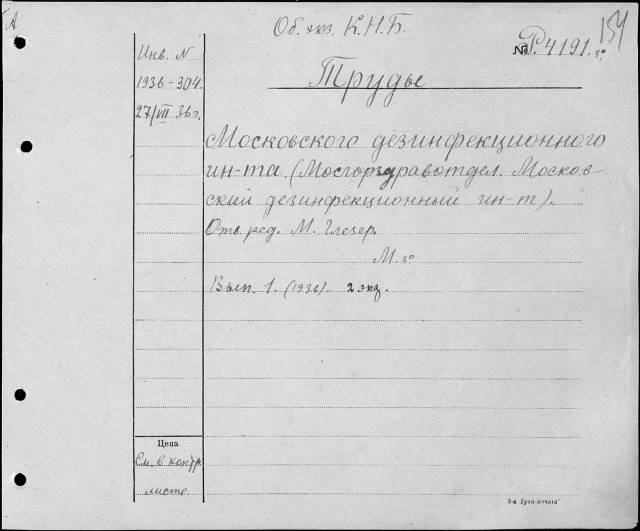 А
Об. экз. К.Н.Б.
154
№ Р.4191. 8°
Инв. N
1936-304.
27/VII 36г.
Труды
Московского дезинфекционного
ин-та (Мосгорздравотдел. Москов-
ский дезинфекционный ин-т).
Отв. ред. М. Глезер.
М. 8°
Вып. 1. (1936). 2 экз.
Цена
См. в контр.
листе
3-я Тип.